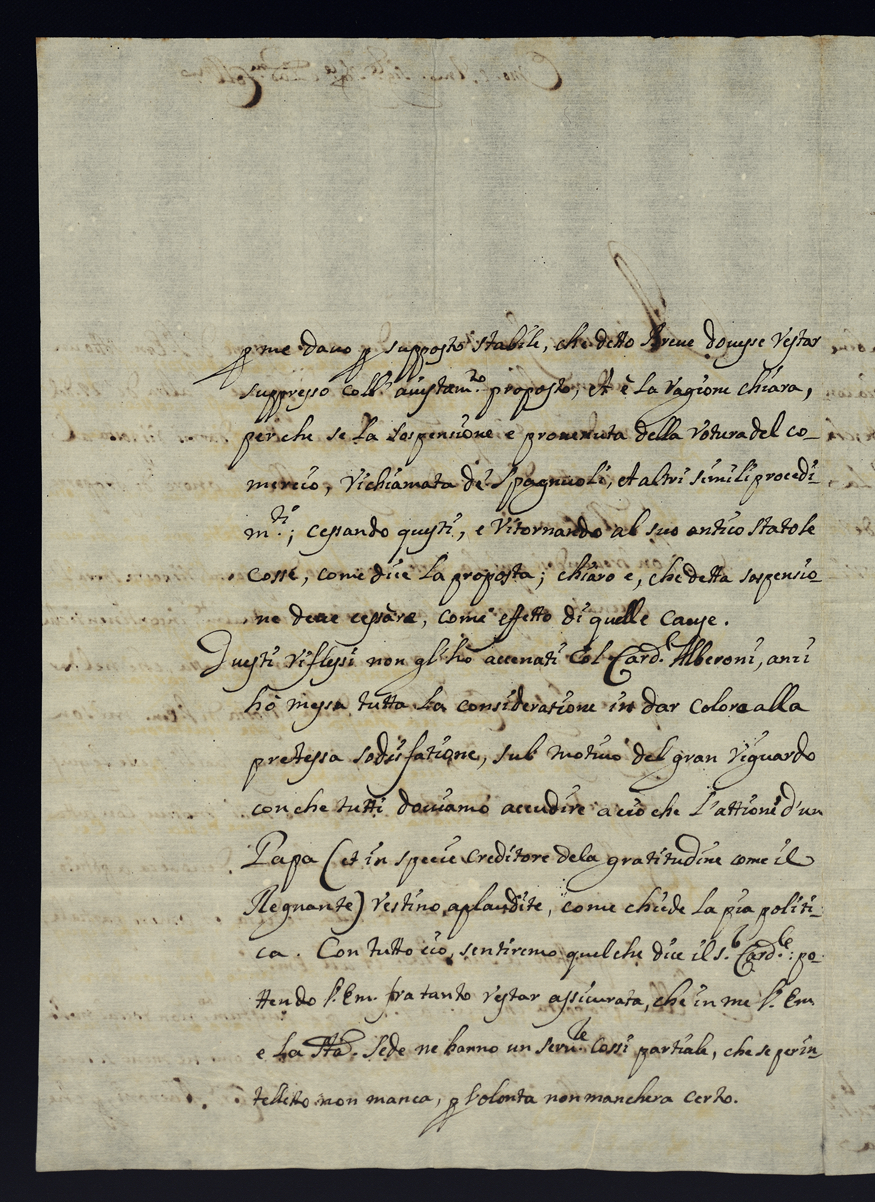 p me davo p supposto stabile, che detto Breve dovesse restar
suppresso coll' aiustam.to proposto, et è la ragione chiara,
perche se la sospensione e provenuta della rotura del co-
mercio, richiamata de Spagnuoli, et altri simili procedi-
m.ti; cessando questi, e ritornando al suo antico stato le
cosse, come dice la proposta; chiaro e, che detta sospensio-
ne deve cessare, come effetto di quelle cause.
Questi riflessi non gl'ho accenati col Card.l Alberoni, anzi
hò messa tutta la consideratione in dar colore alla
pretessa sodisfatione, sub motivo del gran riguardo
con che tutti doviamo accudire a ciò che l'attioni d'un
Papa (et in specie creditore dela gratitudine come il
Regnante) restino aplaudite, come chiede la pia politi-
ca. Con tutto ciò, sentiremo quel che dice il s.r Card.le: po-
ttendo V. Em. fra tanto restar assicurata, che in me V. Em.
e la Sta. Sede ne hanno un serv.le cossi partiale, che se per in-
telletto non manca, p volonta non manchera certo.